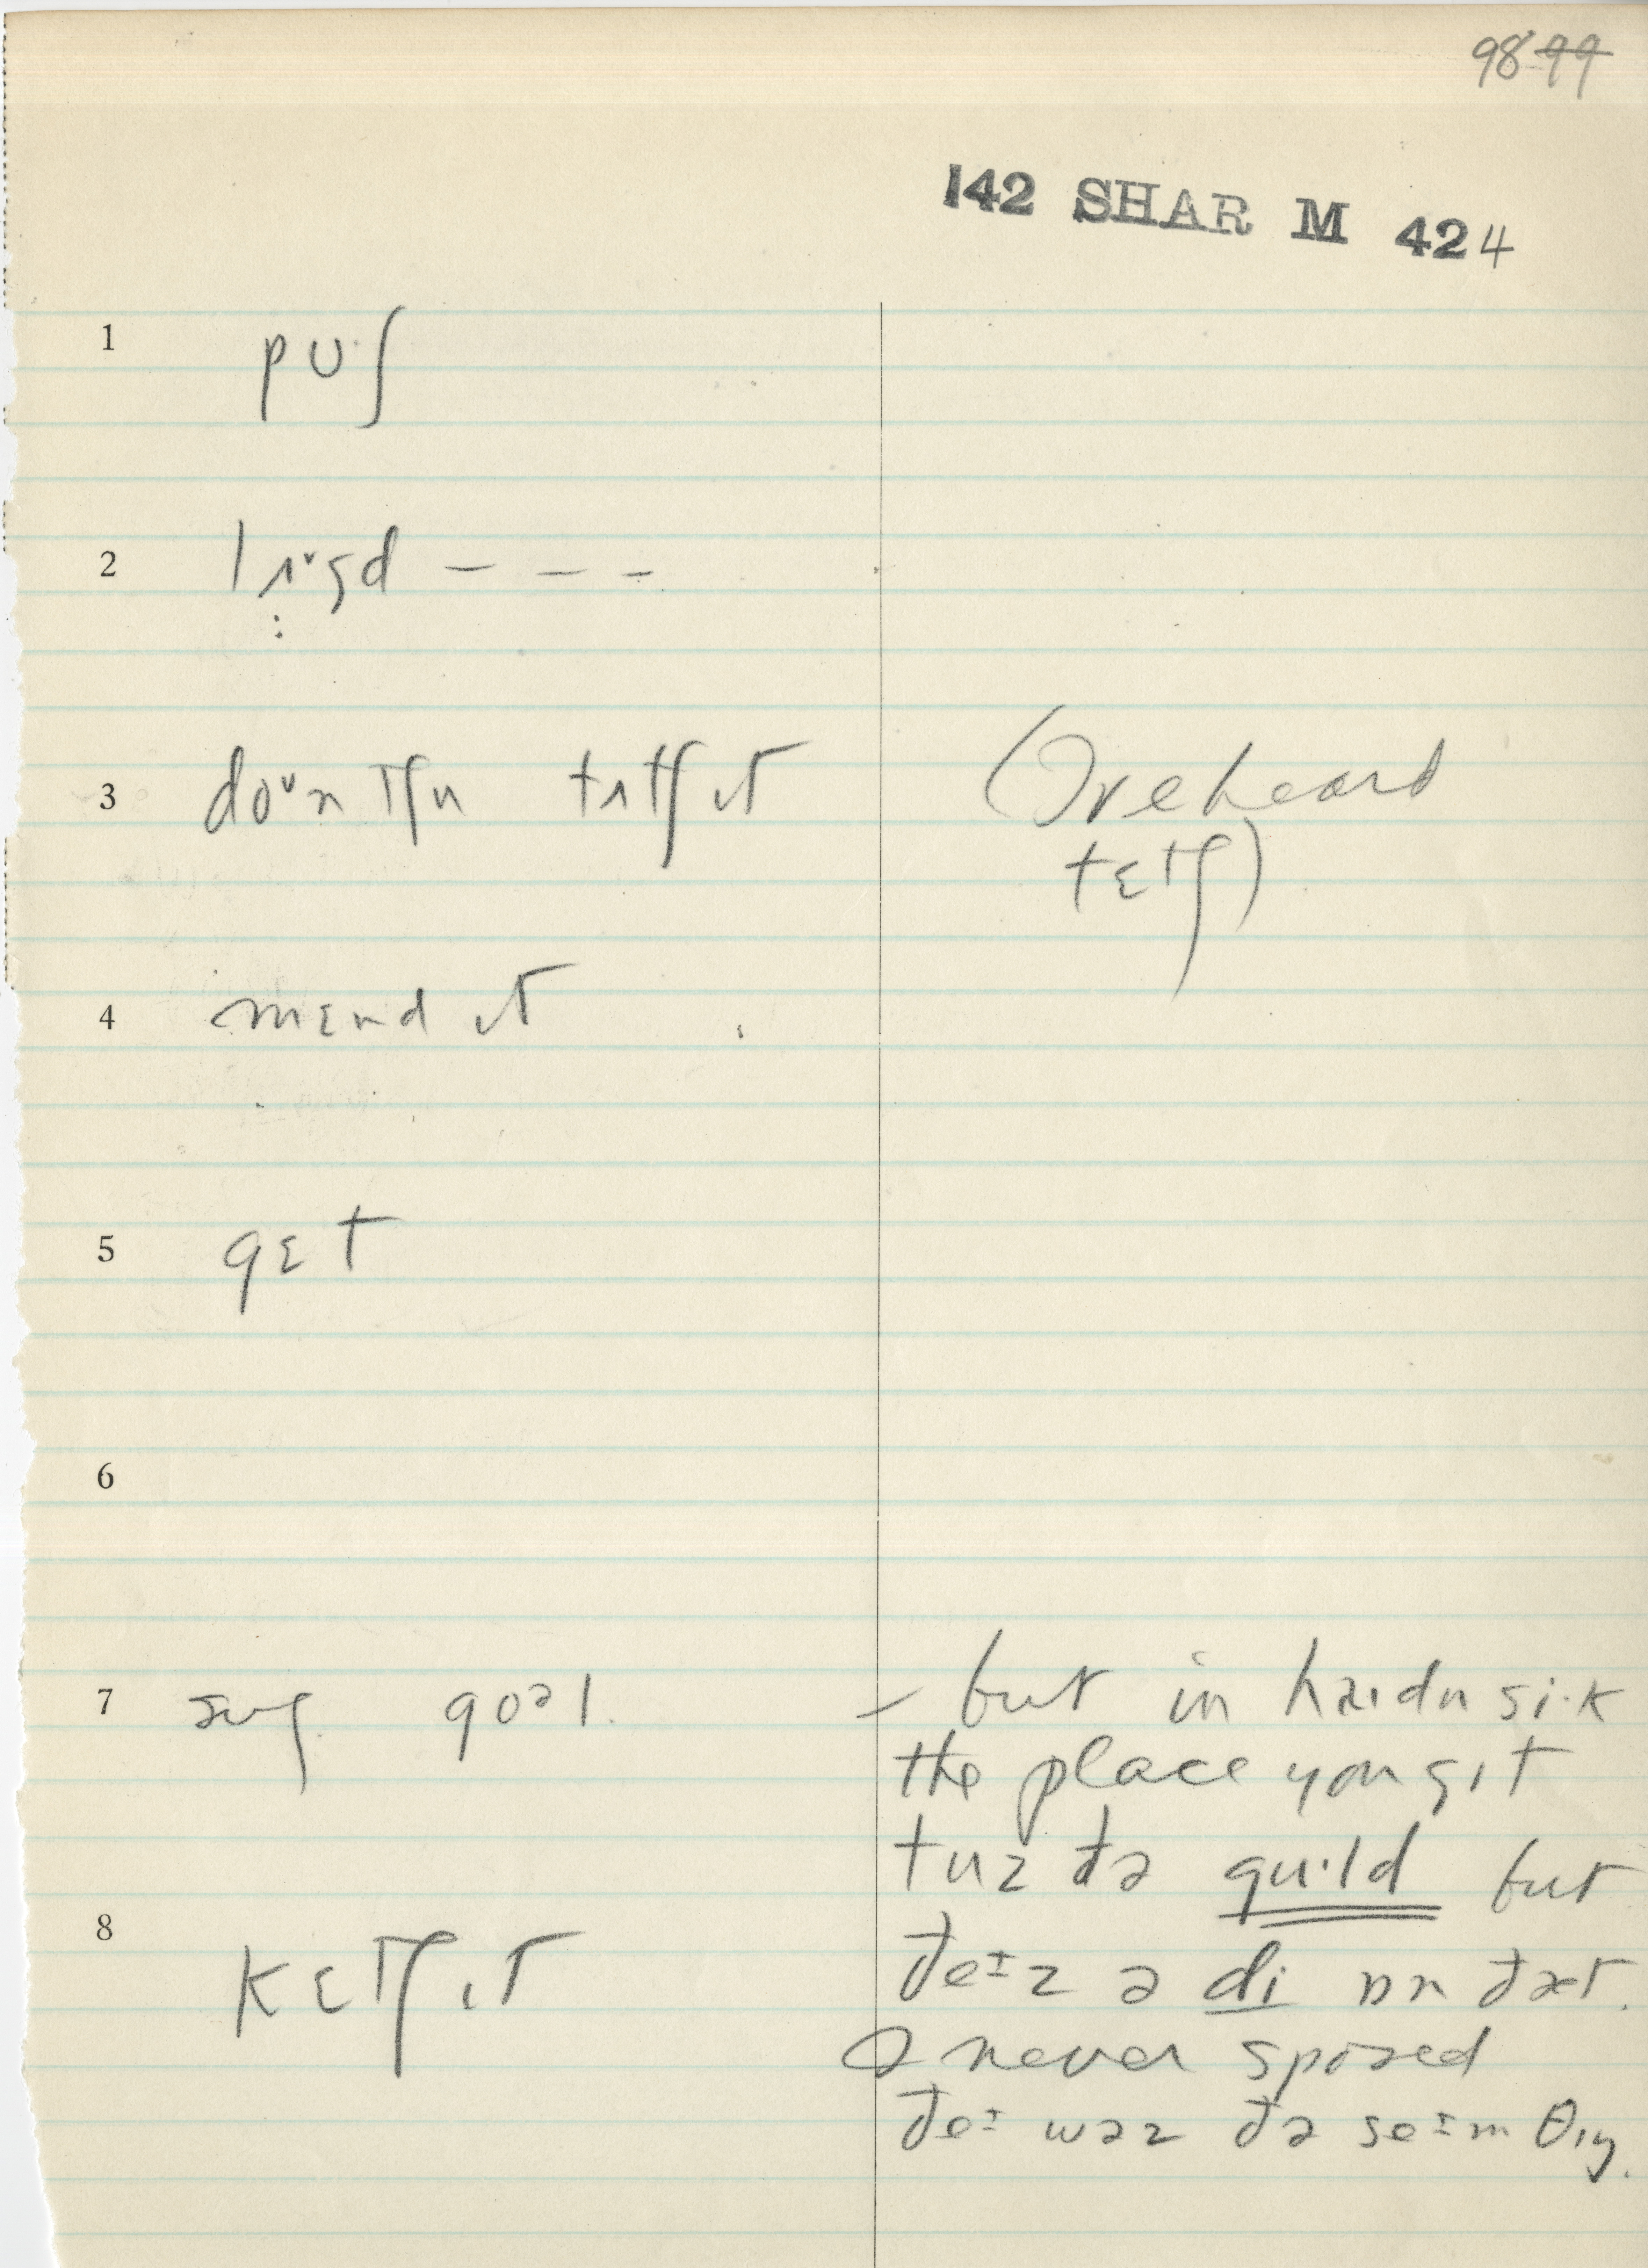 98 99
142 SHAR M 424
1 pʊʃ
2
3 doᵛn tʃu tɪtʃ ɪt
(Overheard
tɛtʃ)
4 mɛnd ɪt
5 gɛt
6
7 goᵊl
– but in haɪdn sik
the place you gɪt
tuz ðə gu·ld but
ðeɪz ə di ɒn ðæt.
I never sposed
ðeɪ wəz ðə seɪm θɪŋ.
8 kɛtʃ ɪt